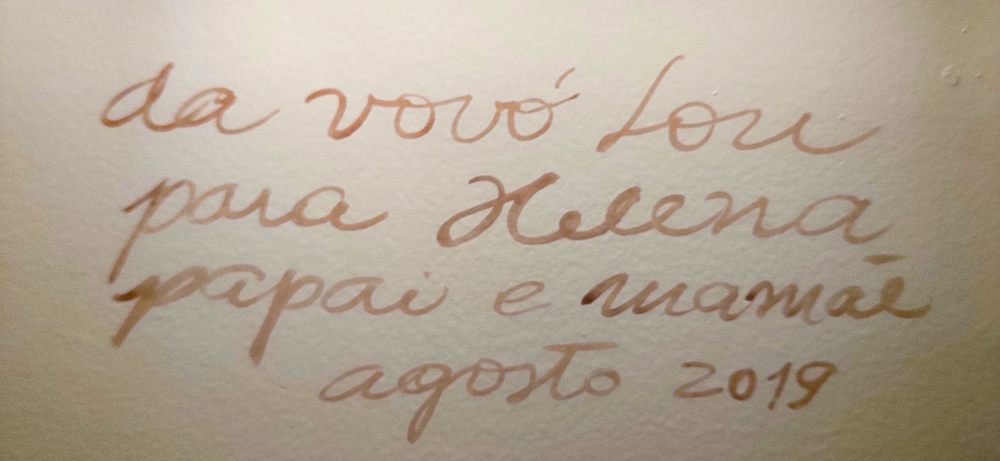 da vovó Lou
para Helena
papai e mamãe
agosto 2019